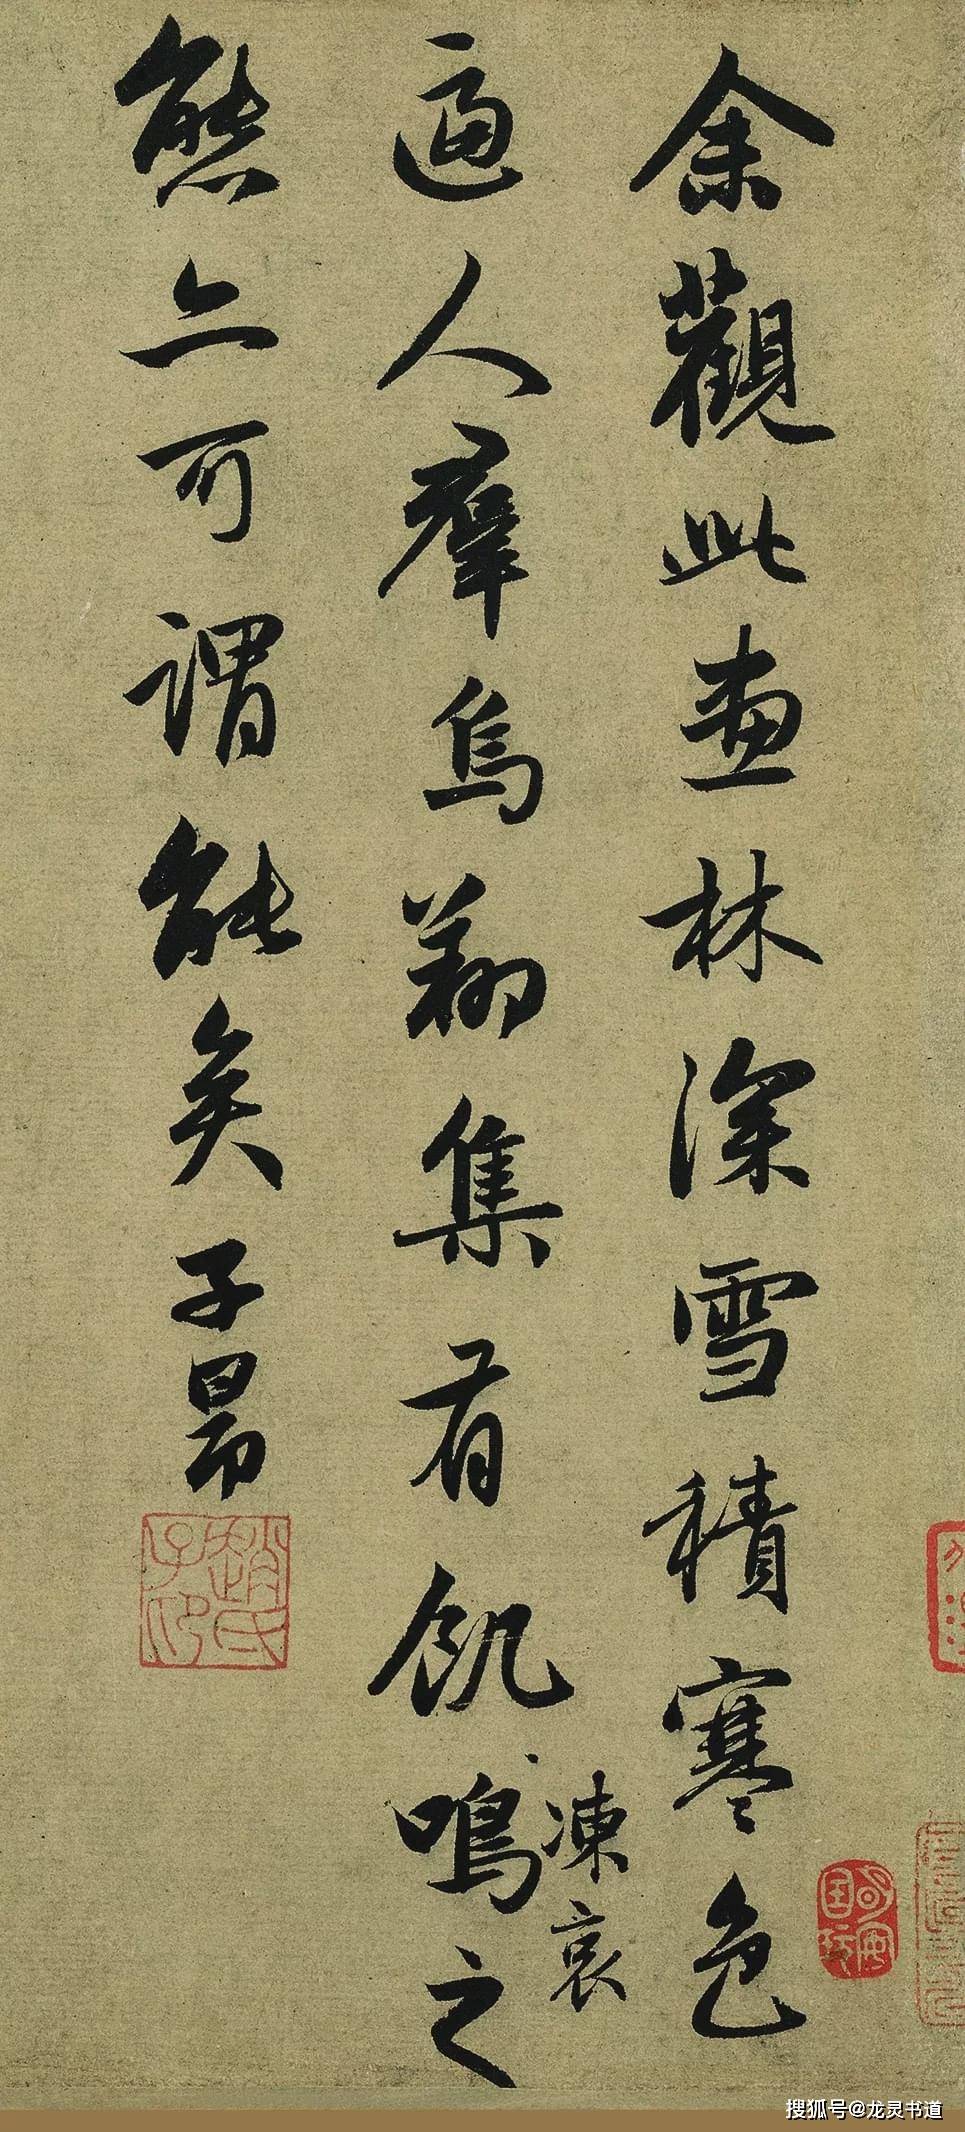 余觀此畫林深雪積寒色
逼人羣烏翔集有飢凍哀鳴之
態亦可謂能矣子昂
趙氏子印
搜狐号@龙灵书道